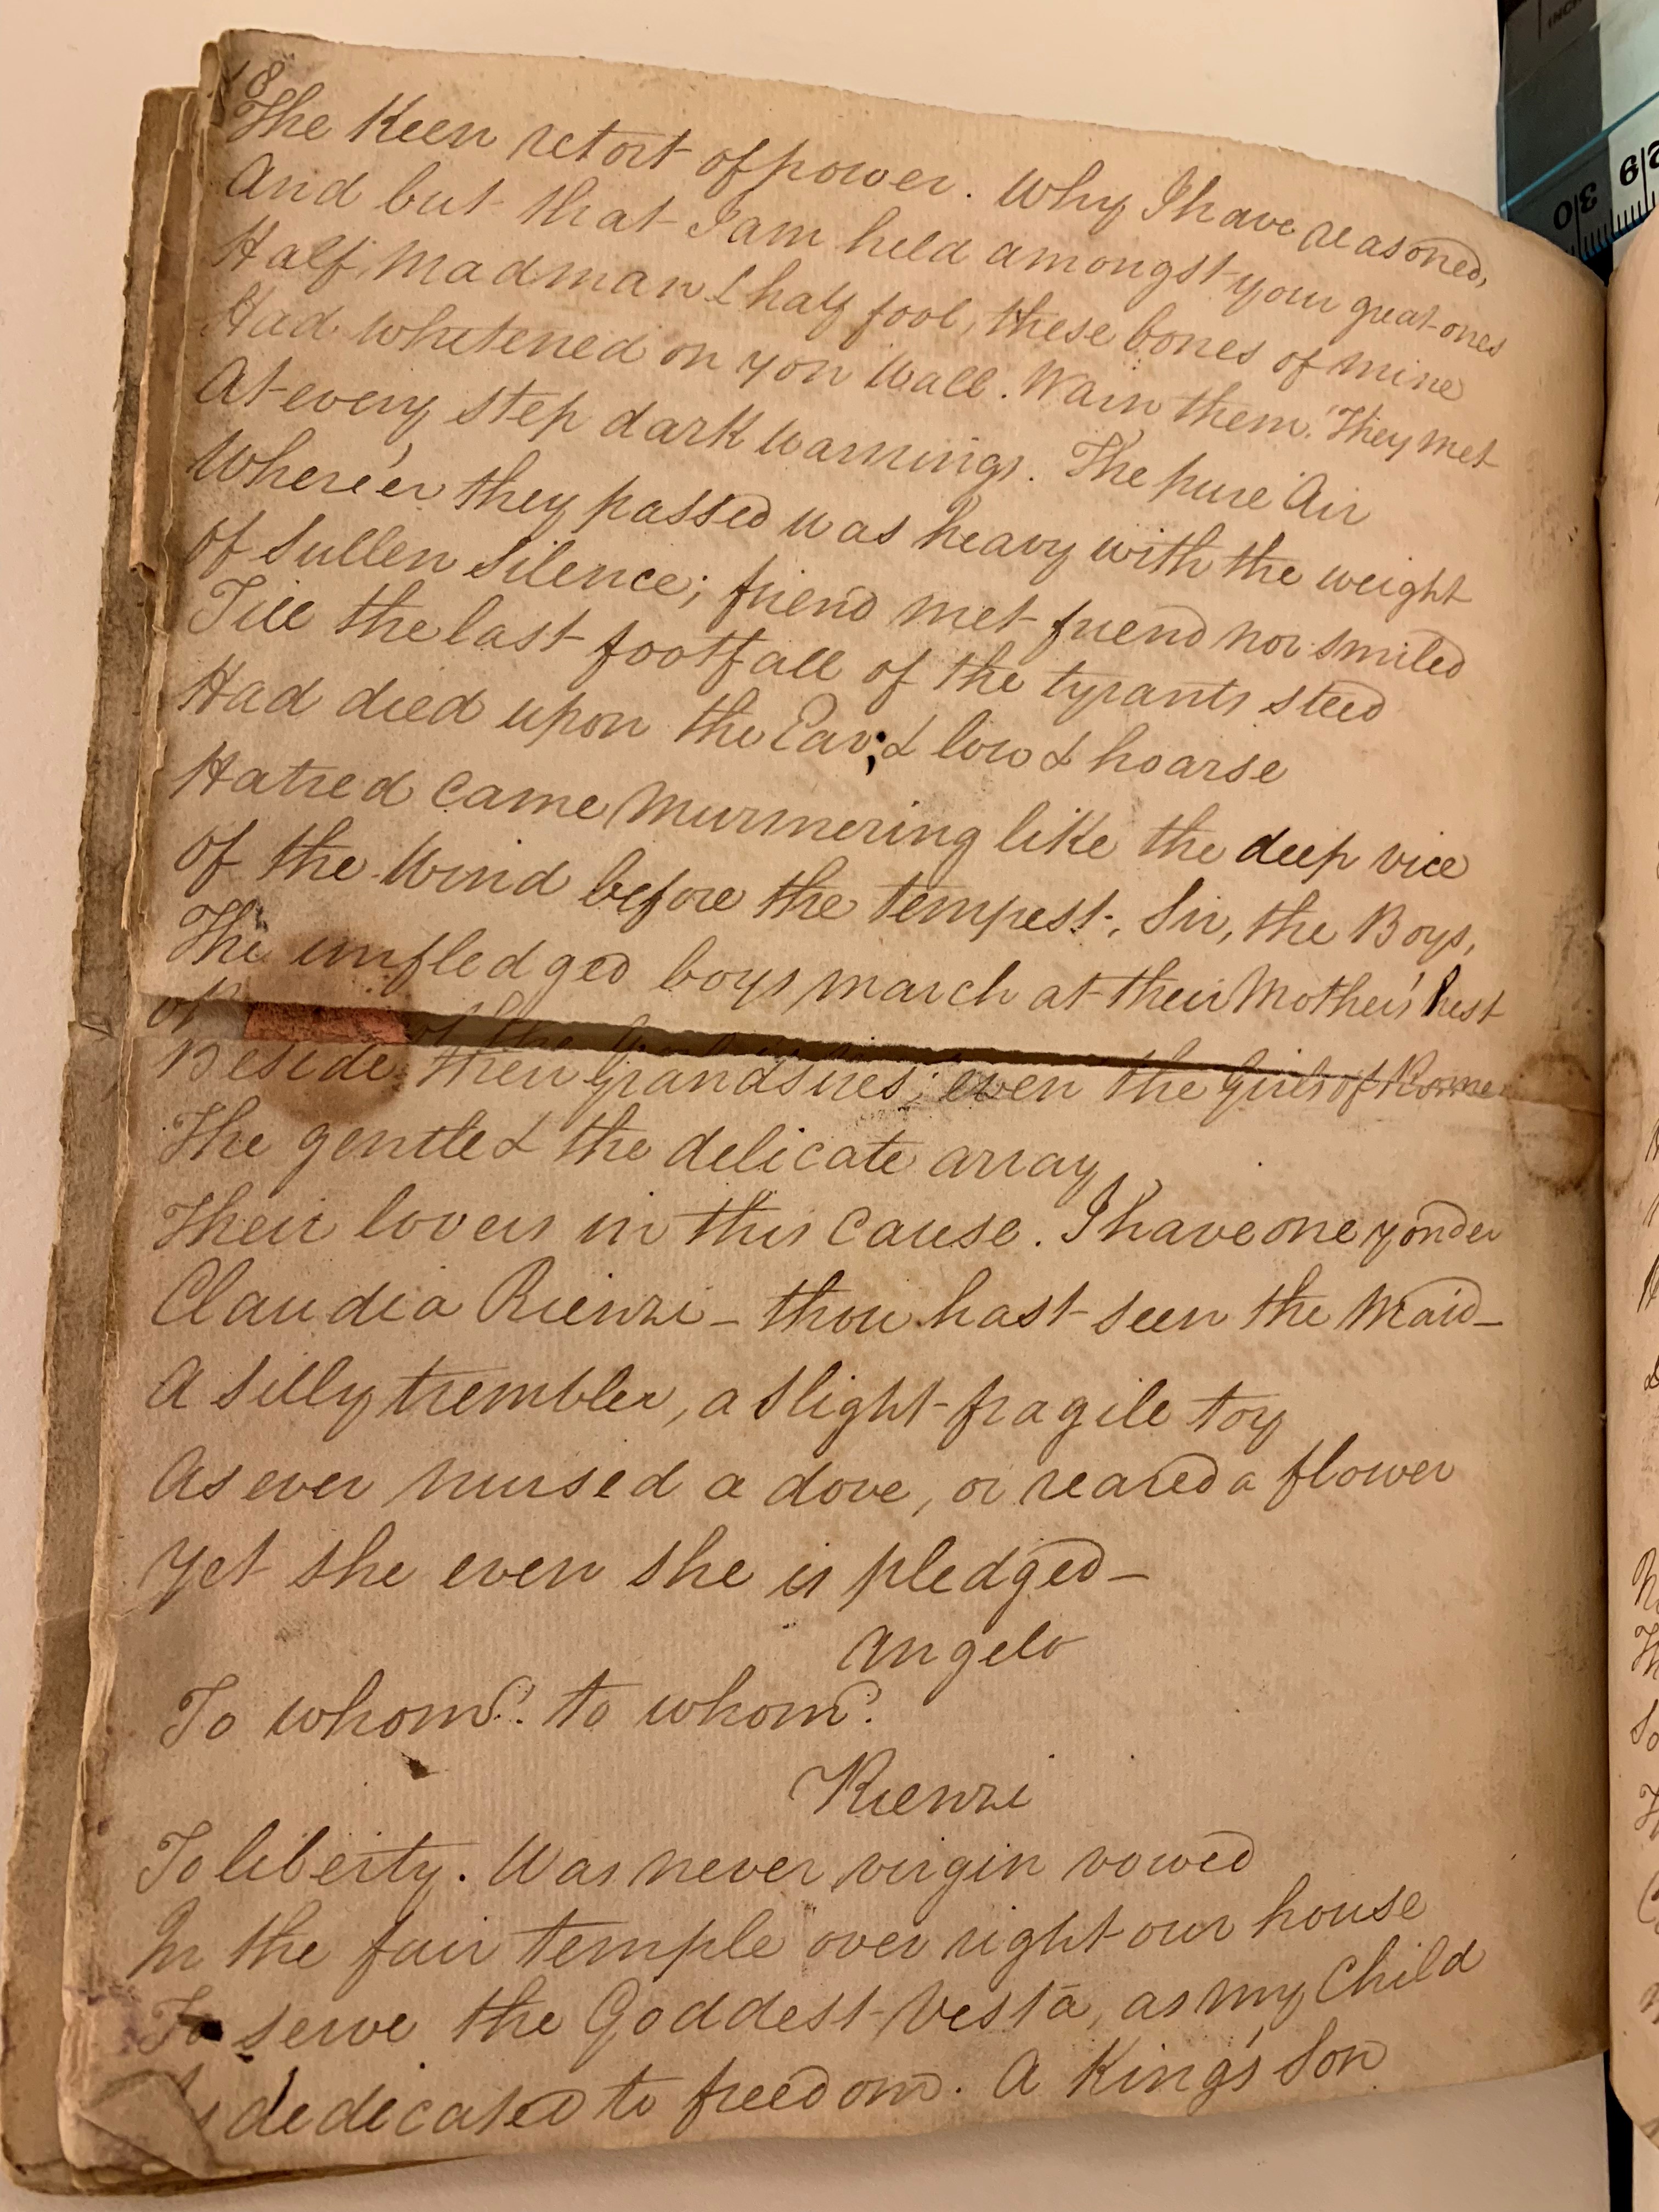 18
The Keen retort of power. Why I have reasoned,
And but that I am held amongst your great ones
Half Madman & half fool, these bones of mine
Had whitened on yon Wall. Warn them! They met
At every step dark warnings. The pure Air
Where'er they passed was heavy with the weight
Of Sullen Silence; friend met friend nor smiled
Till the last footfall of the tyrants steed
Had died upon the Ear; & low & hoarse
Hatred came Murmering like the deep vice
Of the Wind before the tempest. Sir, the Boys,
The unfledged boys march at their Mother's hest
Beside their Grandsires; even the Girls of Rome
The gentle & the delicate array
Their lovers in this Cause. I have one yonder
Claudia Rienzi – thou hast seen the Maid –
A Silly trembler, a Slight fragile toy
As ever nursed a dove, or reared a flower
Yet she even she is pledged –
Angelo
To whom? to whom?
Rienzi
To liberty. Was never virgin vowed
In the fair temple over right our house
To serve the Goddest Vesta, as my Child
dedicated to freedom. A King's Son